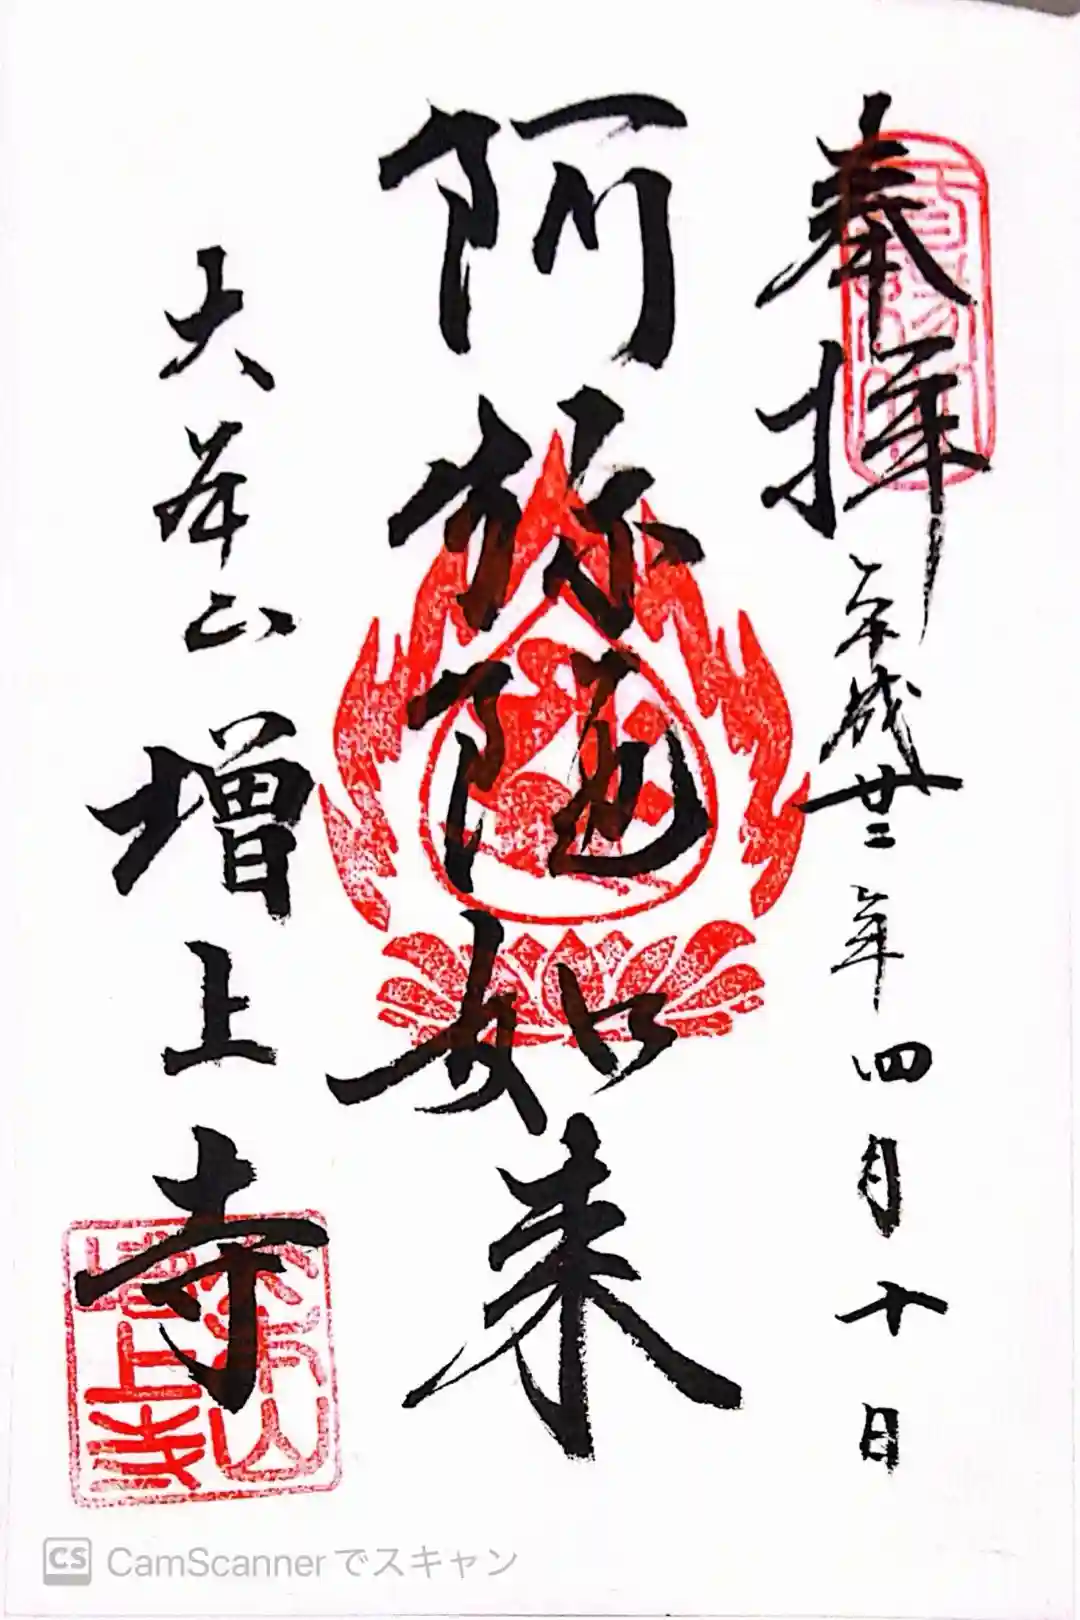 奉拝 平成廿二年四月十日
阿弥陀如来
大本山 増上寺
大本山
増上寺
CS CamScannerでスキャン